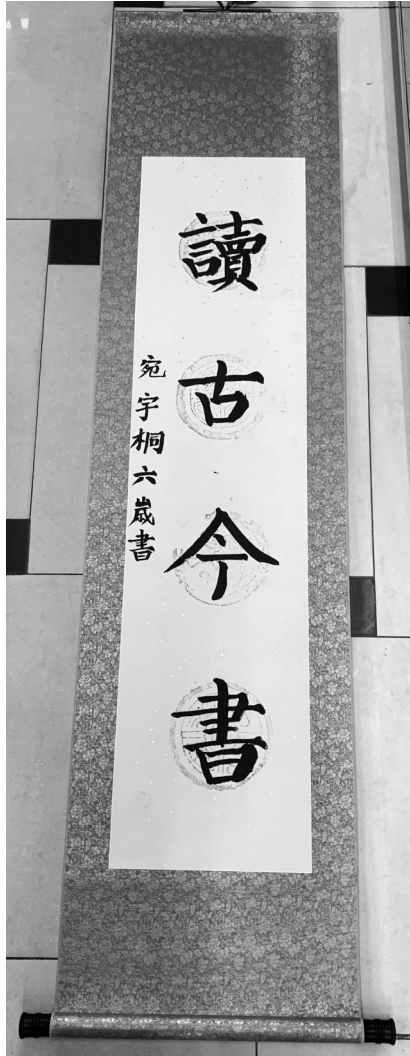 讀古今書
宛宇桐六歲書